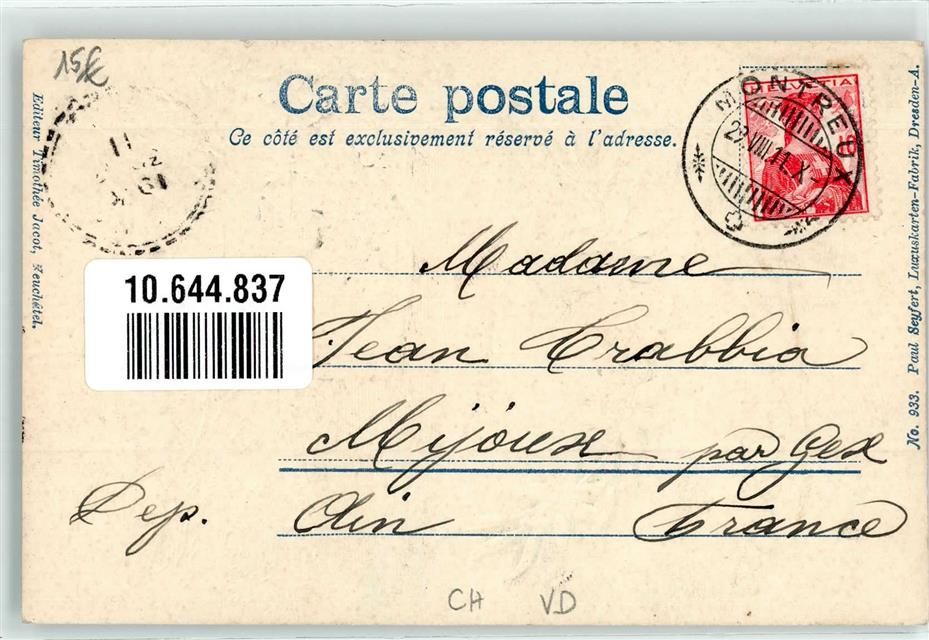 15€
Carte postale
Ce côté est exclusivement réservé à l'adresse.
HELVETIA
MONTREUX
Editeur Timothée Jacot, Neuchâtel.
10.644.837
Madame
Jean Crabbia
Mijoux par Gex
Dep. Ain France
No. 933. Paul Seyfert, Luxuskarten-Fabrik, Dresden-A.
CH VD